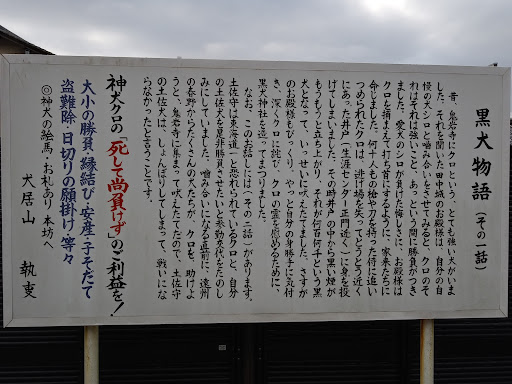 黒犬物語（その一話）
昔、鬼岩寺にクロという、とても強い犬がいま
した。それを聞いた田中城のお殿様は、自分の自
慢の犬シロと嚙みあいをさせてみると、クロのそ
れはそれは強いこと、あっという間に勝負がつき
ました。愛犬のシロが負けた悔しさに、お殿様は
クロを捕まえて打ち首にするように、家来たちに
命しました。何十人もの槍や刀を持った侍に追い
つめられたクロは、逃げ場を失ってとうとう近く
にあった井戸（生涯センター正門近く）に身を投
げてしまいました。その時井戸の中から黒い煙が
もうもうと立ち上がり、それが何百何千という黒
犬となって、いっせいに吠えたてました。さすが
のお殿様もびっくり、やっと自分の身勝手に気付
き、深くクロに詫び、クロの霊を慰めるために、
黒犬神社を造ってまつりました。
なお、このお話しには（その二話）があります。
土佐守は東海道一と恐れられているクロと、自分
の土佐犬を是非勝負させたいと参勤交代をたのし
みにしていました。嚙み合いになる直前に、遠州
の春野からたくさんの犬たちが、クロを、助けよ
うと、鬼岩寺に集まって吠えたてたので、土佐守
の土佐犬は、しょんぼりしてしまって、戦いにな
らなかったと言うことです。
神犬クロの「死して尚負けず」のご利益を！
大小の勝負・縁結び・安産・子そだて
盗難除・日切りの願掛け・等々
◎神犬の絵馬・お札あり 本坊へ
犬居山 執叓